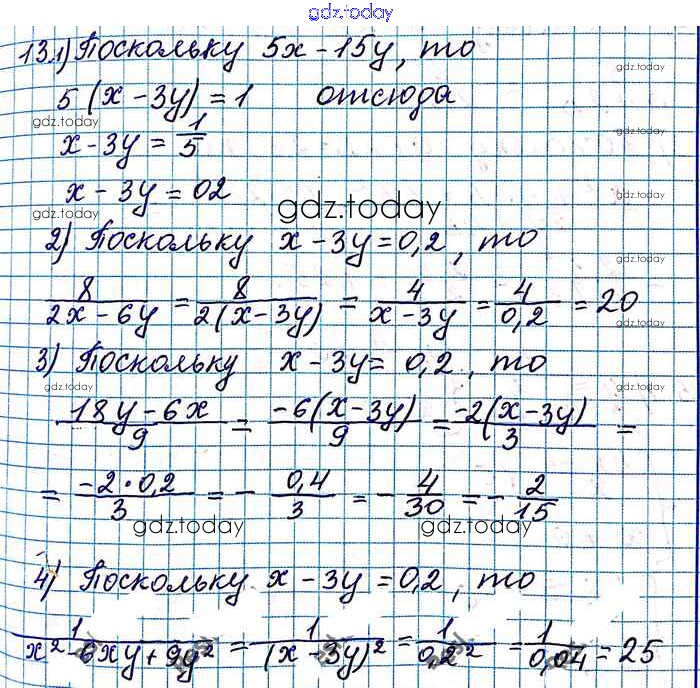 gdz.today
13.1) Поскольку 5x - 15y, то
5(x - 3y) = 1 отсюда
gdz.today
x - 3y = 1/5
x - 3y = 02
gdz.today
gdz.today
2) Поскольку x - 3y = 0,2, то
8/(2x - 6y) = 8/(2(x - 3y)) = 4/(x - 3y) = 4/0,2 = 20
3) Поскольку x - 3y = 0,2, то
gdz.today
(18y - 6x)/9 = (-6(x - 3y))/9 = (-2(x - 3y))/3 =
= (-2·0,2)/3 = - 0,4/3 = - 4/30 = - 2/15
gdz.today gdz.today
4) Поскольку x - 3y = 0,2, то
1/(x² - 6xy + 9y²) = 1/(x - 3y)² = 1/0,2² = 1/0,04 = 25
gdz.today
gdz.today
gdz.today
gdz.today
gdz.today
gdz.today
gdz.today